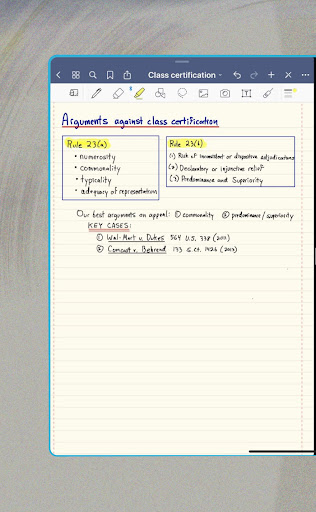 Class certification
Arguments against class certification
Rule 23(a)
• numerosity
• commonality
• typicality
• adequacy of representation
Rule 23(b)
(1) Risk of inconsistent or dispositive adjudications
(2) Declaratory or injunctive relief
(3) Predominance and Superiority
Our best arguments on appeal: ① commonality ② predominance/superiority
KEY CASES:
① Wal-Mart v. Dukes 564 U.S. 338 (2011)
② Comcast v. Behrend 133 S.Ct. 1426 (2013)